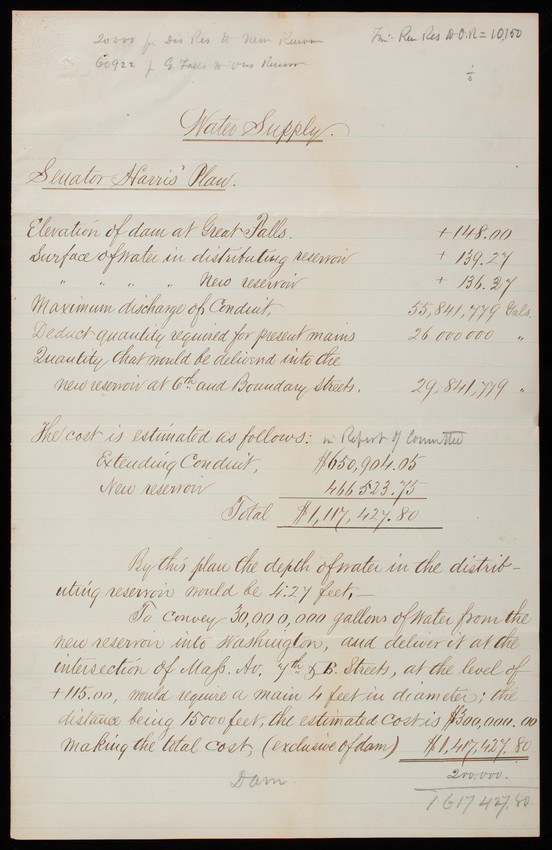 20000 for Dis Res to New Reservoir
Fin: Rec Res to O.R = 10,150
60922 f G. Falls to
Water Supply.
Senator Harris' Plan.
Elevation of dam at Great Falls. + 148.00
Surface of water in distributing reservoir + 139.27
" " " " New reservoir + 136.27
Maximum discharge of Conduit, 55,841,779 Gals.
Deduct quantity required for present mains 26 000 000 "
Quantity that would be delivered into the
new reservoir at 6th and Boundary streets. 29,841,779 "
The cost is estimated as follows: in Report of Committee
Extending Conduit, $650,904.05
New reservoir 466 523.75
Total $1,117,427.80
By this plan the depth of water in the distrib-
uting reservoir would be 4.27 feet,—
To convey 30,000,000 gallons of water from the
new reservoir into Washington, and deliver it at the
intersection of Mass. Av. 7th & B. Streets, at the level of
+115.00, would require a main 4 feet in diameter; the
distance being 15000 feet, the estimated cost is $300,000.00
making the total cost, (exclusive of dam) $1,417,427.80
Dam 200.000.
1 617 427.80